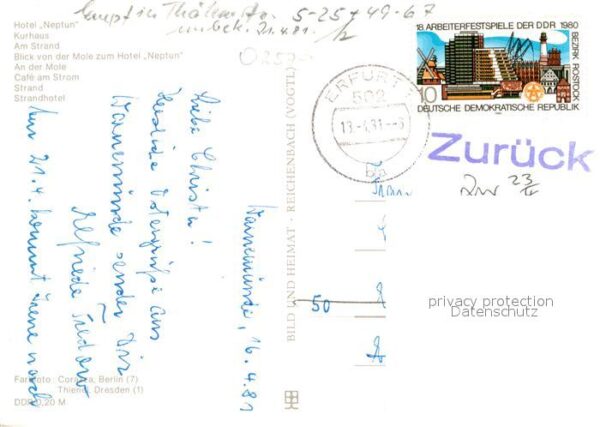 Hotel „Neptun"
Kurhaus
Am Strand
Blick von der Mole zum Hotel „Neptun"
An der Mole
Café am Strom
Strand
Strandhotel
5-25+49-67
21.4.81
18. ARBEITERFESTSPIELE DER DDR 1980
BEZIRK ROSTOCK
10
DEUTSCHE DEMOKRATISCHE REPUBLIK
ERFURT
502
Zurück
23/IV
Warnemünde, 16.4.81
Liebe Christa!
Herzliche Ostergrüße aus
Warnemünde sendet Dir
Elfriede
Am 21.4. kommt Irene nach
50
BILD UND HEIMAT · REICHENBACH (VOGTL)
privacy protection
Datenschutz
Farbfoto: Corazza, Berlin (7)
Thienel, Dresden (1)
DDR 0,20 M